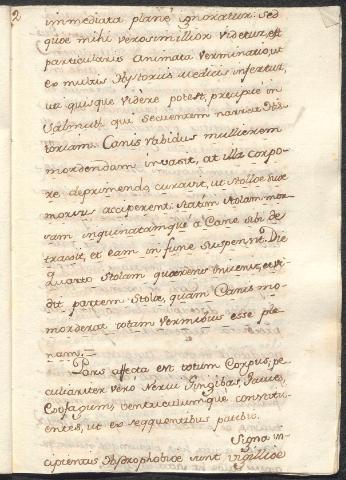 2
immediata planè ignoratur: Sed
quæ mihi verosimillior videtur, est
particularis animata verminatio, ut
ex multis Hystoriis Medicis infertur,
ut quisque videre potest, præcipuè in
Salmuth, qui sequentem narrat His-
toriam. Canis rabidus mullierem
mordendam invasit, at illa corpo-
re deprimendo curavit, ut Stollæ suæ
morsus acciperent. Statim stolam mor-
sam inquinatamque à Cane sibi de
traxit, et eam in fune suspensit. Die
quarto Stolam quærens invenit, et vi-
dit partem Stolæ, quam Canis mo-
morderat totam vermibus esse ple
nam.
Pars affecta est totum Corpus, pe
culiariter verò Nervi Gingibas, fauces,
Esofagum, ventriculumque constitu-
entes, ut ex seqquentibus patebit.
Signa in-
cipientis Hydrophobiæ sunt vigilliæ